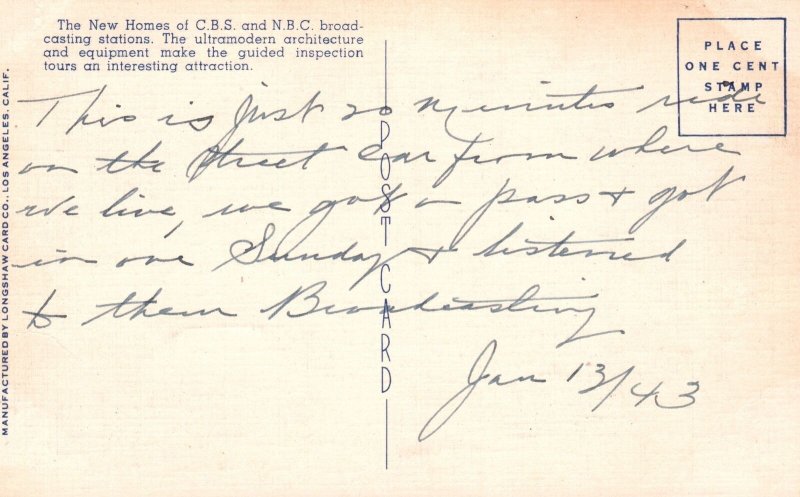 The New Homes of C.B.S. and N.B.C. broad-
casting stations. The ultramodern architecture
and equipment make the guided inspection
tours an interesting attraction.
PLACE
ONE CENT
STAMP
HERE
This is Just 20 minutes ride
on the Street Car from where
we live, we got a pass & got
in one Sunday & listened
to them Broadcasting
Jan 13/43
POST CARD
MANUFACTURED BY LONGSHAW CARD CO., LOS ANGELES, CALIF.